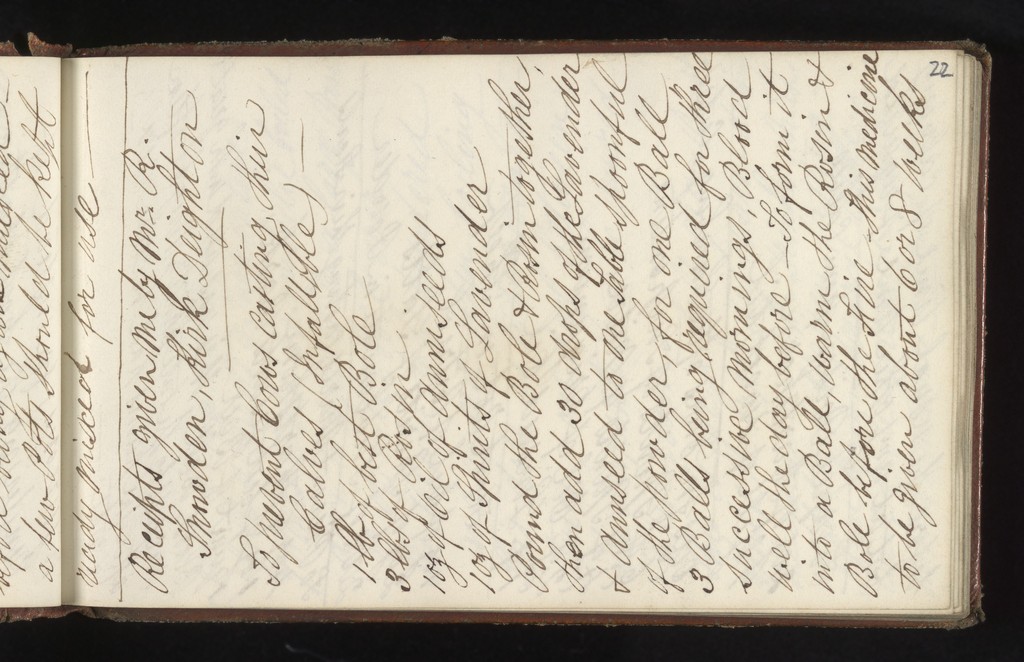 a few Pts should be kept
ready mixed for use —
22
Receipts given me by Mr. R.
Snowden, Kirk Deighton
To prevent Cows casting their
Calves (Infallible) —
1 lb of best Bole
3 lbs of Rosin
1 oz of oil of Anniseeds
1 oz of Spirits of Lavender
Pound the Bole & Rosin together,
then add 30 drops of the Lavender
& Anniseed to one table spoonful
of the powder for one Ball
3 Balls being required for three
successive mornings, Blood
well the day before — To form it
into a Ball, warm the Rosin &
Bole before the Fire this medicine
to be given about 6 or 8 weeks